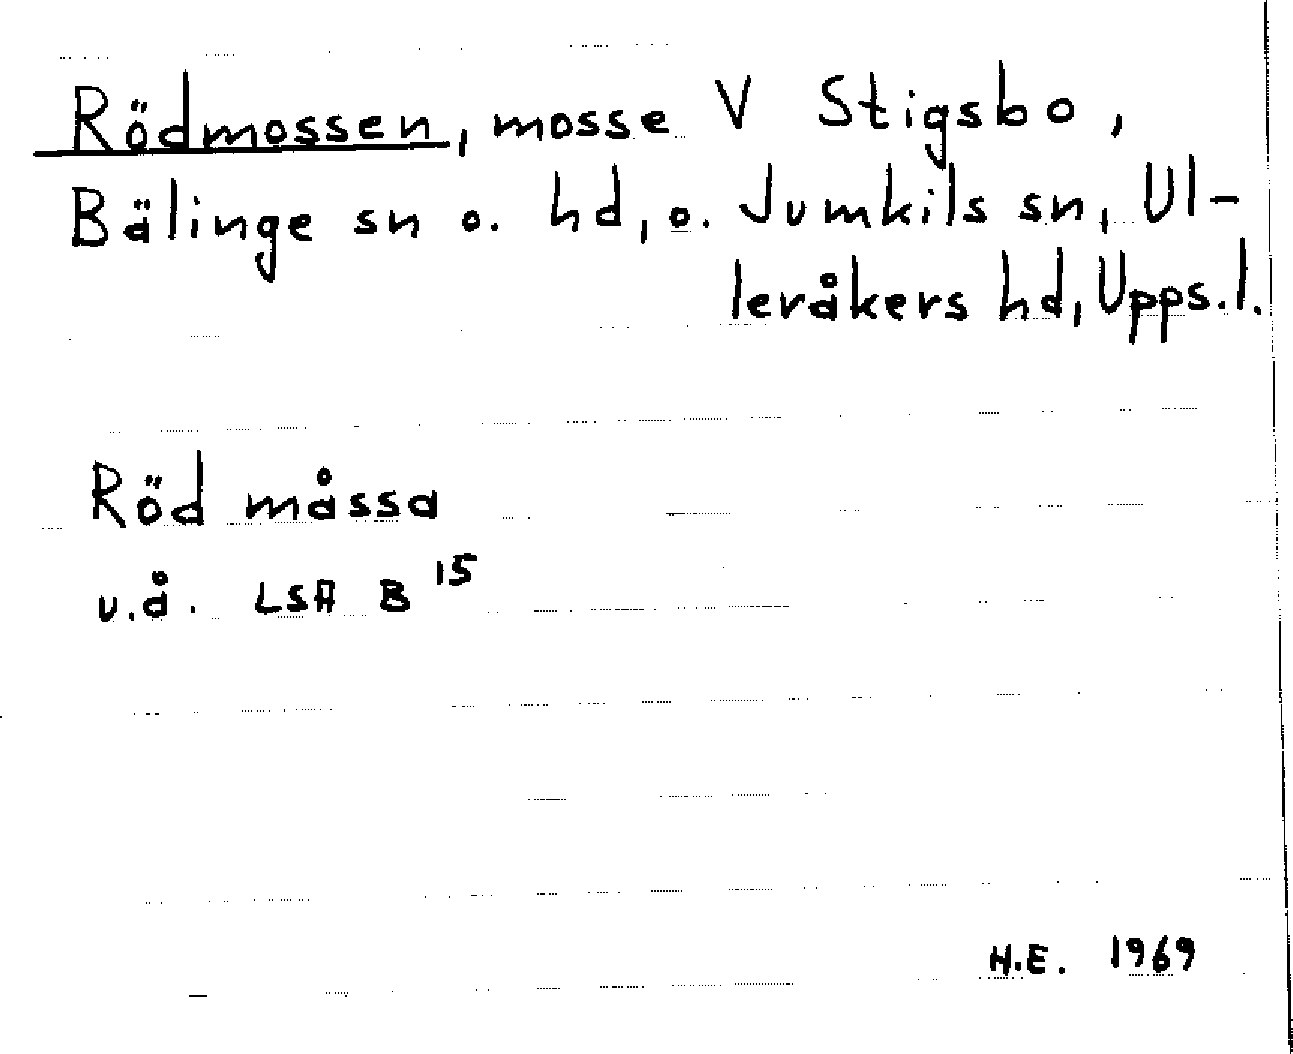 Rödmossen, mosse V Stigsbo,
Bälinge sn o. hd, o. Jumkils sn, Ul-
leråkers hd, Upps. l.
Röd måssa
u.å. LSA B 15
H.E. 1969